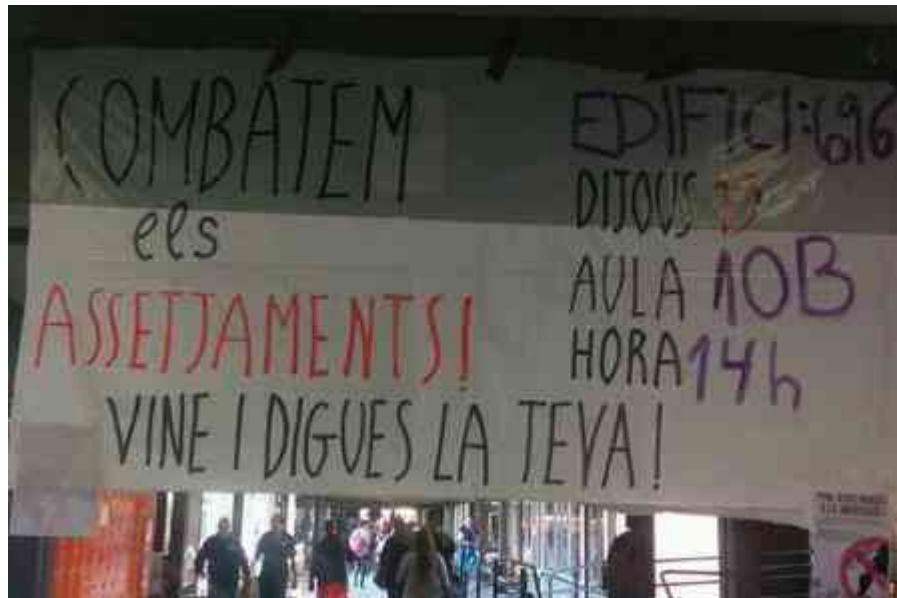 COMBATEM
els
ASSETJAMENTS!
VINE I DIGUES LA TEVA!
EDIFICI: 696
DIJOUS
AULA 10B
HORA 14h